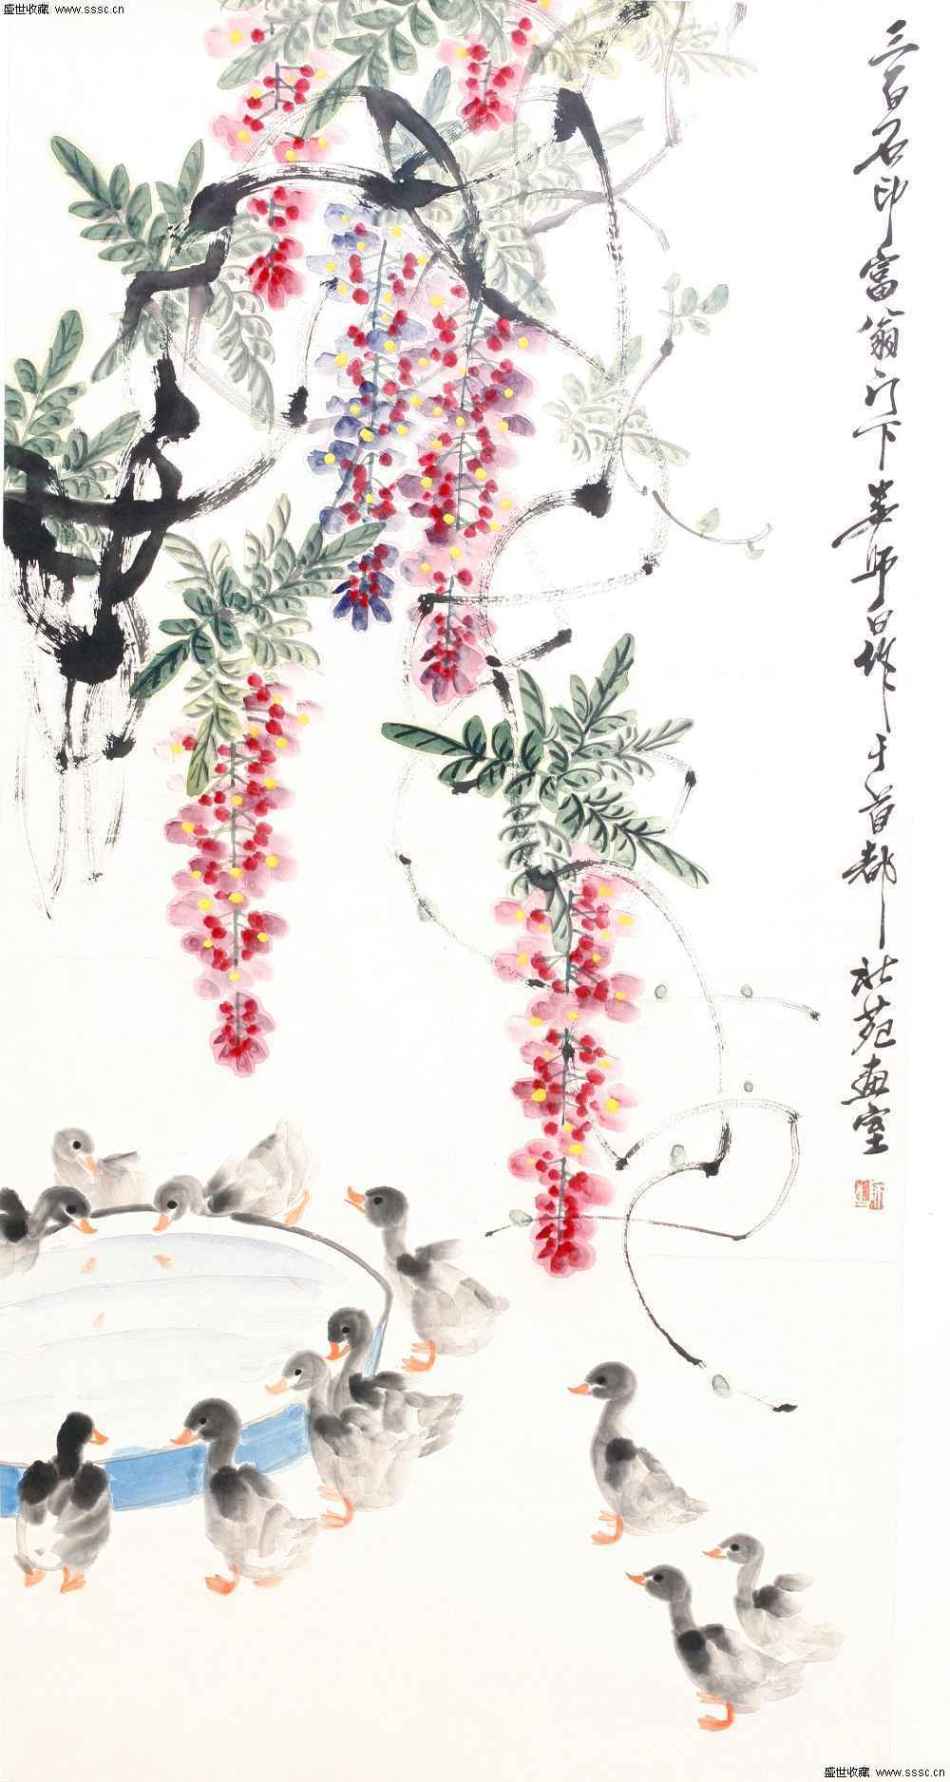 盛世收藏 www.sssc.cn
三百石印富翁门下娄师白作于首都社苑画室
盛世收藏 www.sssc.cn